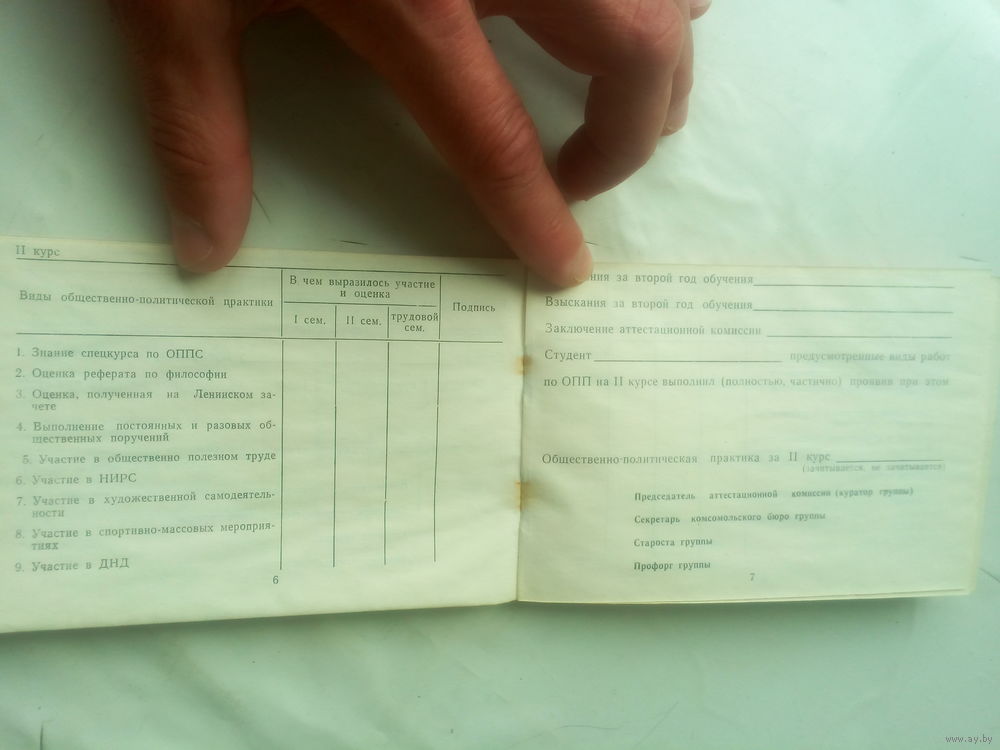 II курс
Виды общественно-политической практики
В чем выразилось участие
и оценка
Подпись
I сем.
II сем.
трудовой
сем.
1. Знание спецкурса по ОППС
2. Оценка реферата по философии
3. Оценка, полученная на Ленинском за-
чете
4. Выполнение постоянных и разовых об-
щественных поручений
5. Участие в общественно полезном труде
6. Участие в НИРС
7. Участие в художественной самодеятель-
ности
8. Участие в спортивно-массовых мероприя-
тиях
9. Участие в ДНД
6
за второй год обучения
Взыскания за второй год обучения
Заключение аттестационной комиссии
Студент предусмотренные виды работ
по ОПП на II курсе выполнил (полностью, частично) проявив при этом
Общественно-политическая практика за II курс
(зачитывается, не зачитывается)
Председатель аттестационной комиссии (куратор группы)
Секретарь комсомольского бюро группы
Староста группы
Профорг группы
7
www.ay.by